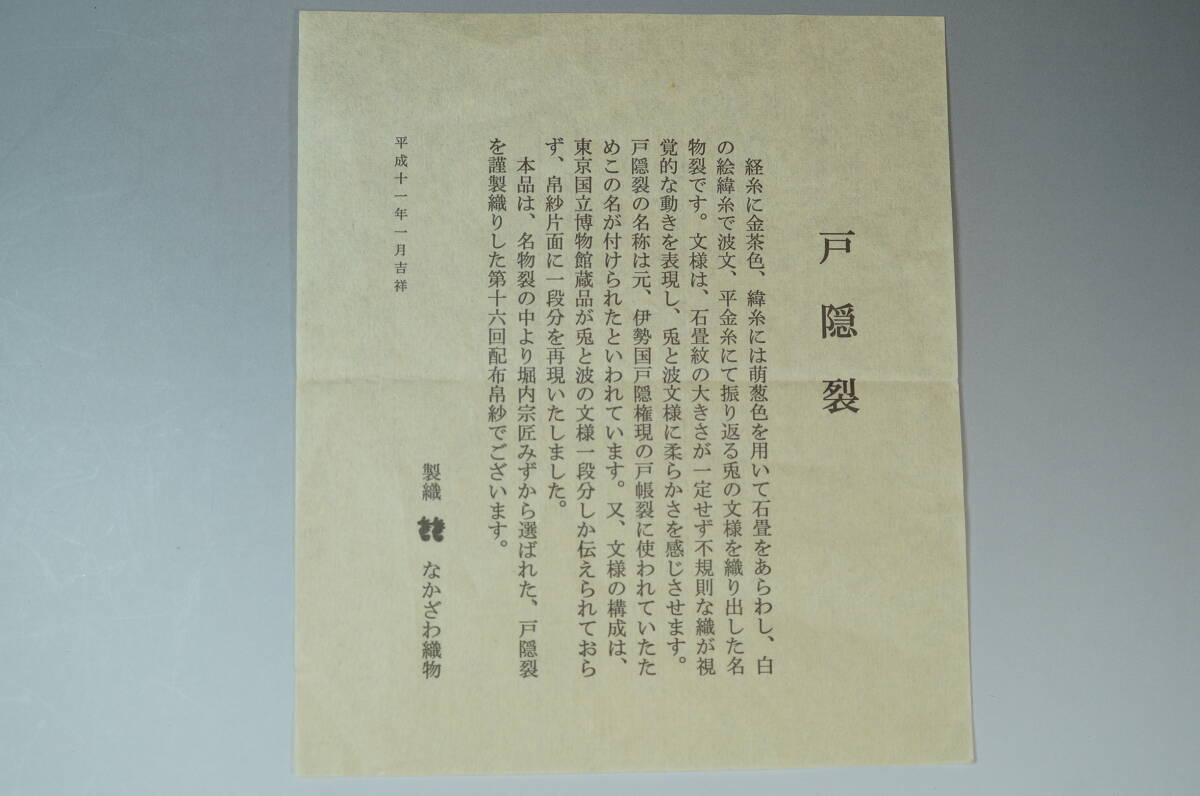 戸隠裂
経糸に金茶色、緯糸には萌葱色を用いて石畳をあらわし、白
の絵緯糸で波文、平金糸にて振り返る兎の文様を織り出した名
物裂です。文様は、石畳紋の大きさが一定せず不規則な織が視
覚的な動きを表現し、兎と波文様に柔らかさを感じさせます。
戸隠裂の名称は元、伊勢国戸隠権現の戸帳裂に使われていたた
めこの名が付けられたといわれています。又、文様の構成は、
東京国立博物館蔵品が兎と波の文様一段分しか伝えられておら
ず、帛紗片面に一段分を再現いたしました。
本品は、名物裂の中より堀内宗匠みずから選ばれた、戸隠裂
を謹製織りした第十六回配布帛紗でございます。
平成十一年一月吉祥
製織 なかざわ織物